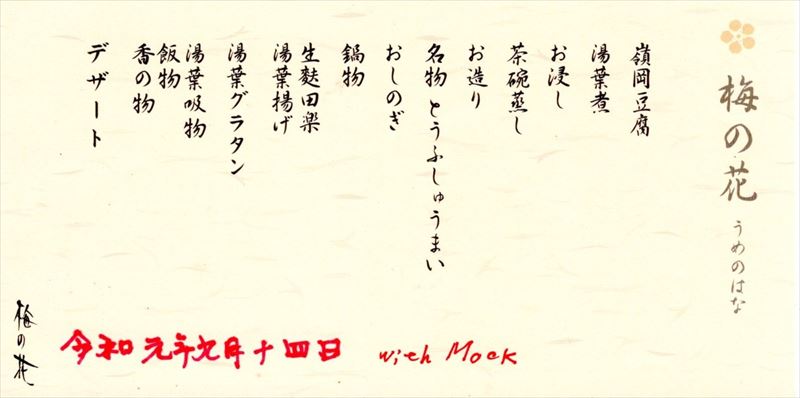 梅の花
うめのはな
嶺岡豆腐
湯葉煮
お浸し
茶碗蒸し
お造り
名物 とうふしゅうまい
おしのぎ
鍋物
生麩田楽
湯葉揚げ
湯葉グラタン
湯葉吸物
飯物
香の物
デザート
梅の花
令和元年九月十四日 with Mock